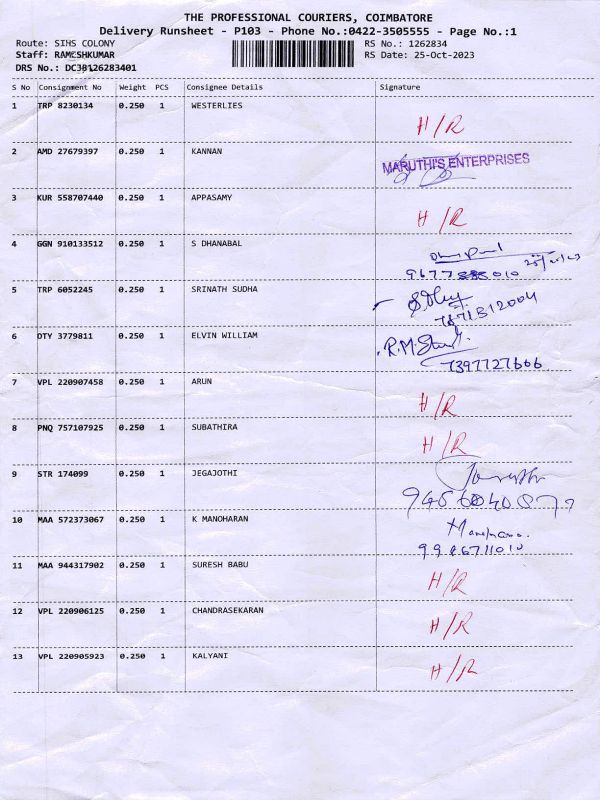 THE PROFESSIONAL COURIERS, COIMBATORE
Delivery Runsheet - P103 - Phone No.:0422-3505555 - Page No.:1
Route: SIHS COLONY RS No.: 1262834
Staff: RAMESHKUMAR RS Date: 25-Oct-2023
DRS No.: DCJB126283401
S No Consignment No Weight PCS Consignee Details Signature
1 TRP 8230134 0.250 1 WESTERLIES
H/R
2 AMD 27679397 0.250 1 KANNAN
MARUTHI'S ENTERPRISES
3 KUR 558707440 0.250 1 APPASAMY
H/R
4 GGN 910133512 0.250 1 S DHANABAL
5 TRP 6052245 0.250 1 SRINATH SUDHA
7871512004
6 DTY 3779811 0.250 1 ELVIN WILLIAM
7397727666
7 VPL 220907458 0.250 1 ARUN
H/R
8 PNQ 757107925 0.250 1 SUBATHIRA
H/R
9 STR 174099 0.250 1 JEGAJOTHI
10 MAA 572373067 0.250 1 K MANOHARAN
11 MAA 944317902 0.250 1 SURESH BABU
H/R
12 VPL 220906125 0.250 1 CHANDRASEKARAN
H/R
13 VPL 220905923 0.250 1 KALYANI
H/R